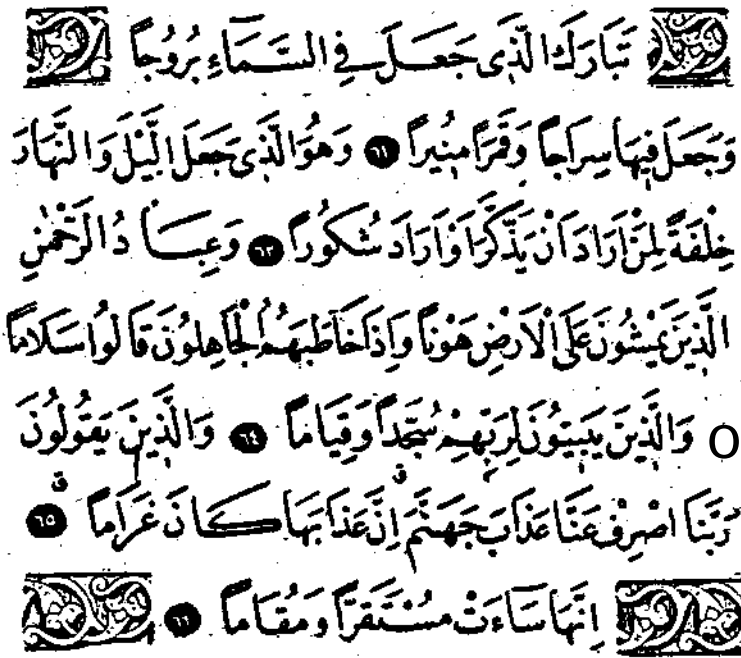 تَبَارَكَ الَّذٖى جَعَلَ فِى السَّمَٓاءِ بُرُوجاً
وَجَعَلَ فٖيهَا سِرَاجاً وَقَمَراً مُنٖيراً ﴿٦١﴾ وَهُوَ الَّذٖى جَعَلَ الَّيْلَ وَالنَّهَارَ
خِلْفَةً لِمَنْ اَرَادَ اَنْ يَذَّكَّرَ اَوْ اَرَادَ شُكُوراً ﴿٦٢﴾ وَعِبَادُ الرَّحْمٰنِ
الَّذٖينَ يَمْشُونَ عَلَى الْاَرْضِ هَوْناً وَاِذَا خَاطَبَهُمُ الْجَاهِلُونَ قَالُوا سَلَاماً
o وَالَّذٖينَ يَبٖيتُونَ لِرَبِّهِمْ سُجَّداً وَقِيَاماً ﴿٦٤﴾ وَالَّذٖينَ يَقُولُونَ
رَبَّنَا اصْرِفْ عَنَّا عَذَابَ جَهَنَّمَ ق اِنَّ عَذَابَهَا كَانَ غَرَاماً ق ﴿٦٥﴾
اِنَّهَا سَٓاءَتْ مُسْتَقَرّاً وَمُقَاماً ﴿٦٦﴾